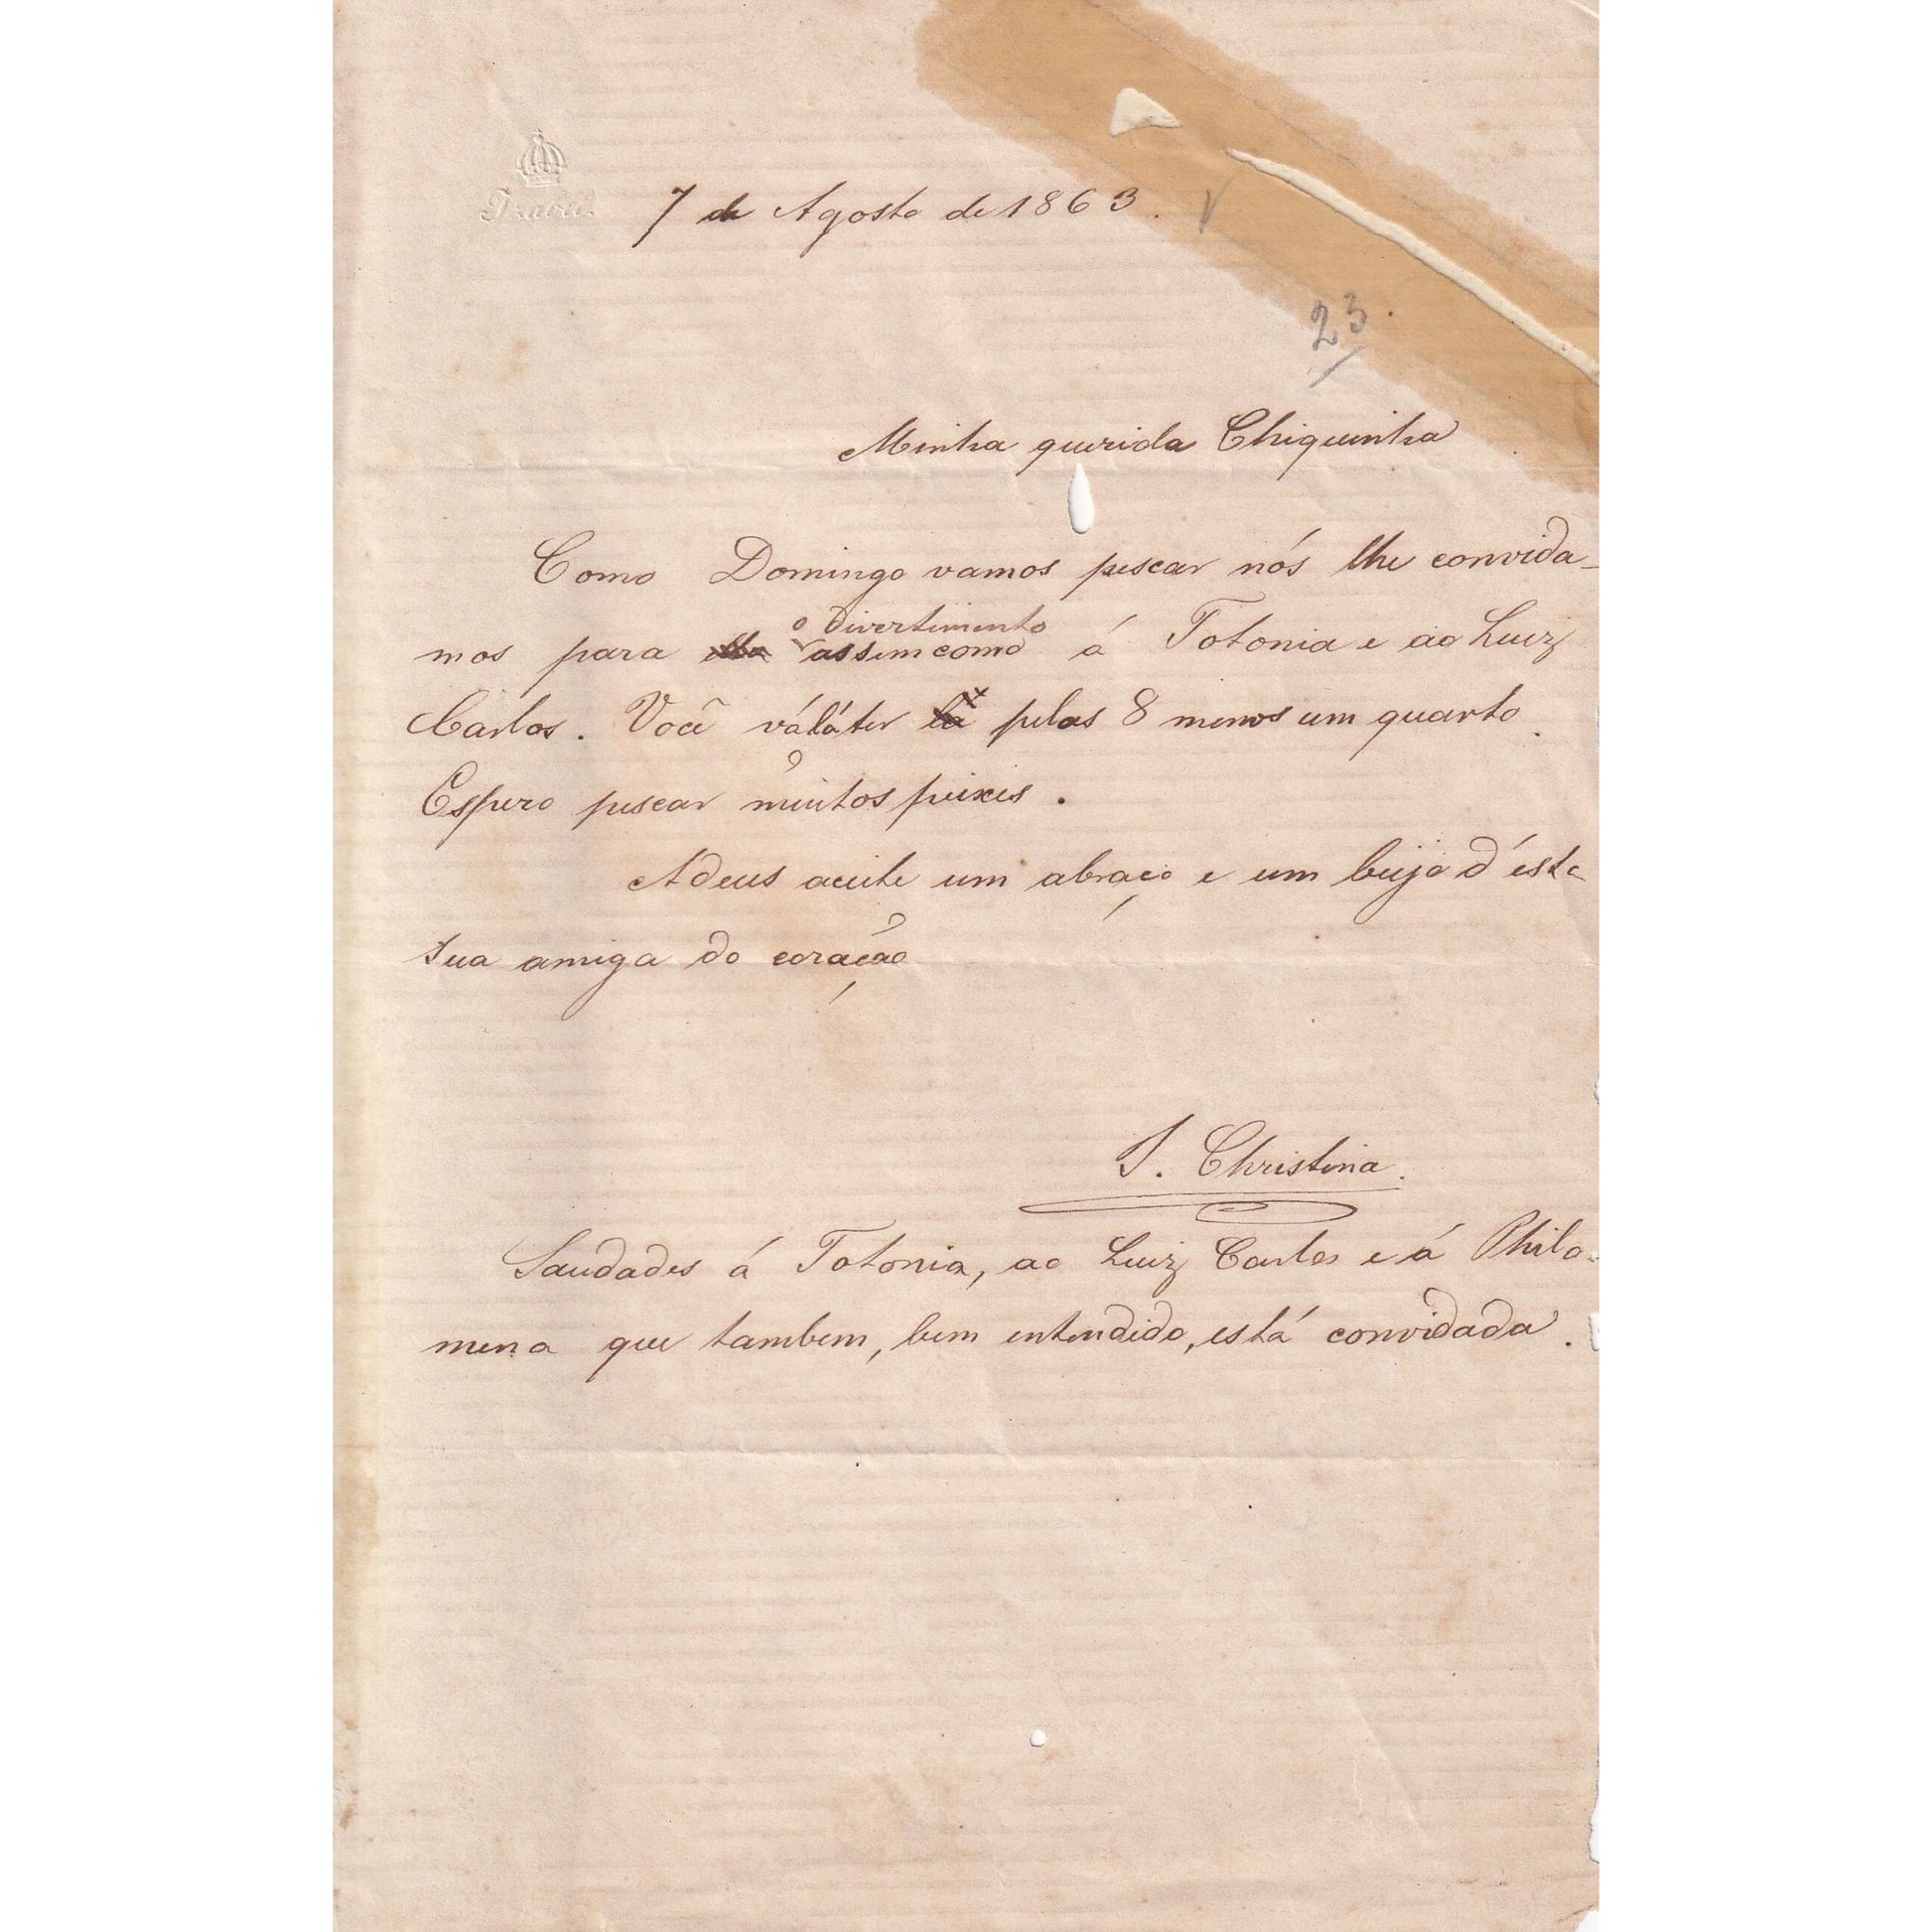 7 de Agosto de 1863.
23.
Minha querida Chiquinha
Como Domingo vamos pescar nós lhe convida-
o divertimento
mos para assim como á Totonia e ao Luiz
Carlos. Você vá lá ter pelas 8 menos um quarto.
Espero pescar muitos peixes.
Adeus aceite um abraço e um beijo d'ésta
sua amiga do coração
I. Christina.
Saudades á Totonia, ao Luiz Carlos e á Philo-
mena que tambem, bem entendido, está convidada.